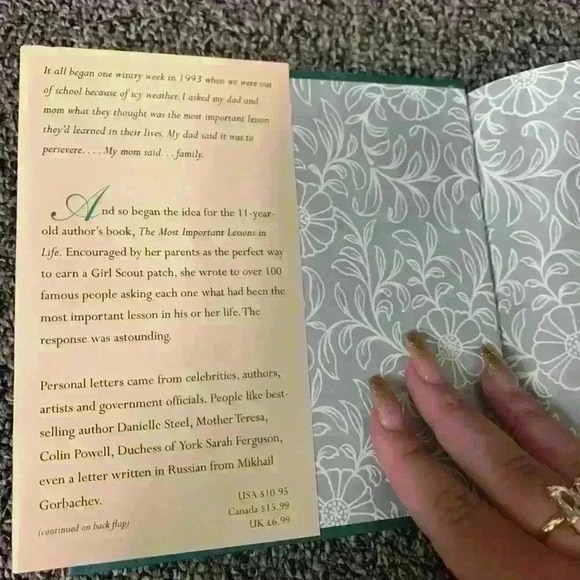 It all began one wintry week in 1993 when we were out
of school because of icy weather. I asked my dad and
mom what they thought was the most important lesson
they'd learned in their lives. My dad said it was to
persevere. . . . My mom said. . . family.
And so began the idea for the 11-year-
old author's book, The Most Important Lessons in
Life. Encouraged by her parents as the perfect way
to earn a Girl Scout patch, she wrote to over 100
famous people asking each one what had been the
most important lesson in his or her life. The
response was astounding.
Personal letters came from celebrities, authors,
artists and government officials. People like best-
selling author Danielle Steel, Mother Teresa,
Colin Powell, Duchess of York Sarah Ferguson,
even a letter written in Russian from Mikhail
Gorbachev.
USA $10.95
Canada $15.99
UK £6.99
(continued on back flap)